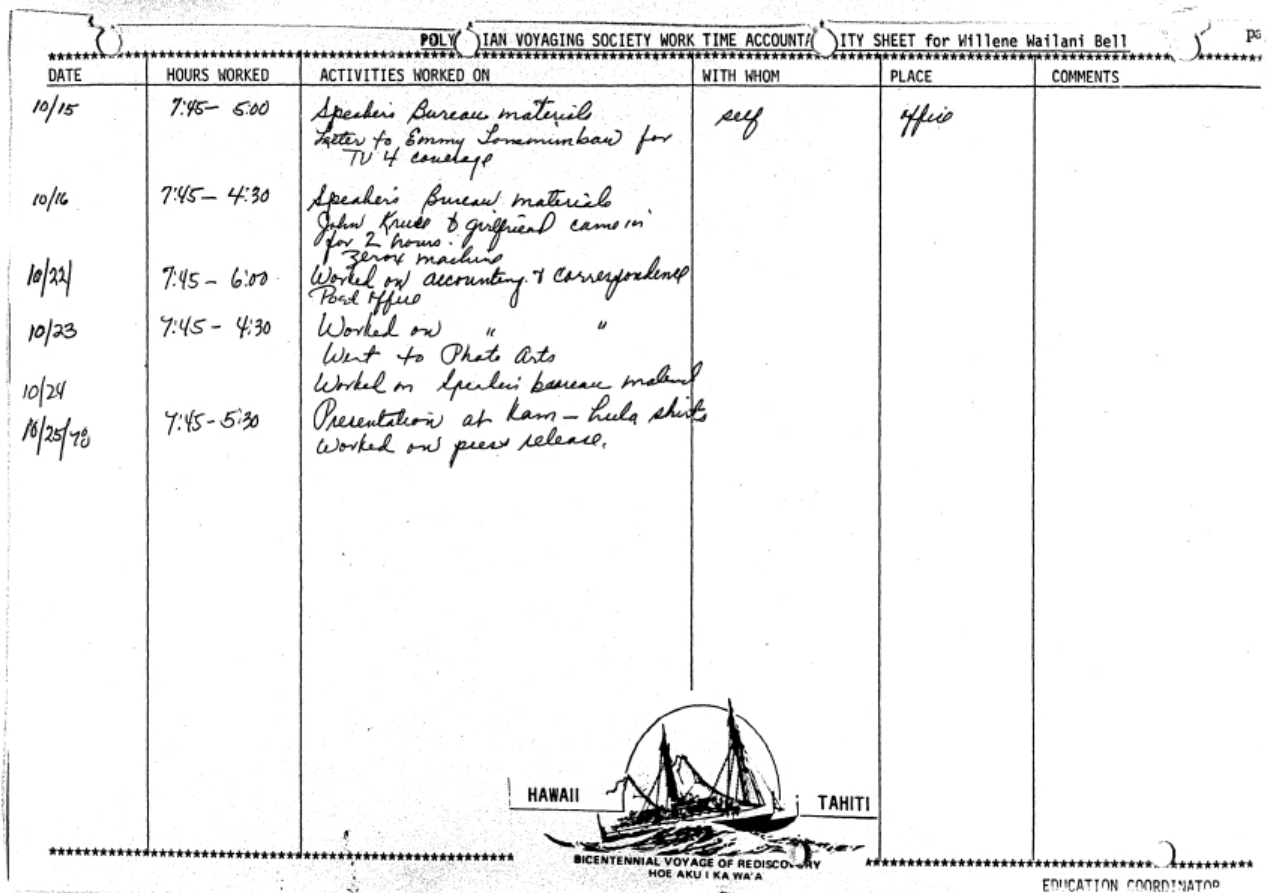 POLY IAN VOYAGING SOCIETY WORK TIME ACCOUNTA ITY SHEET for Willene Wailani Bell
DATE HOURS WORKED ACTIVITIES WORKED ON WITH WHOM PLACE COMMENTS
10/15 7:45 – 5:00 Speaker's Bureau materials self office
Letter to Emmy for
TV 4 coverage
10/16 7:45 – 4:30 Speaker's Bureau materials
John Kruse & girlfriend came in
for 2 hours.
Zerox machine
10/22 7:45 – 6:00 Worked on accounting & correspondence
Post Office
10/23 7:45 – 4:30 Worked on " "
Went to Photo Arts
10/24 Worked on Speaker's bureau material
10/25/78 7:45 – 5:30 Presentation at Kam – hula shirts
Worked on press release.
HAWAII
TAHITI
BICENTENNIAL VOYAGE OF REDISCOVERY
HOE AKU I KA WA'A
EDUCATION COORDINATOR